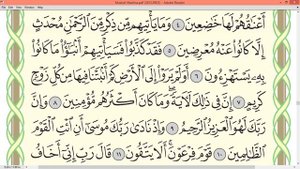 Mushaf Madina.pdf (SECURED) - Adobe Reader
File Edit View Window Help
أَعْنَٰقُهُمْ لَهَا خَٰضِعِينَ ٤ وَمَا يَأْتِيهِم مِّن ذِكْرٍ مِّنَ ٱلرَّحْمَٰنِ مُحْدَثٍ
إِلَّا كَانُوا۟ عَنْهُ مُعْرِضِينَ ٥ فَقَدْ كَذَّبُوا۟ فَسَيَأْتِيهِمْ أَنۢبَٰٓؤُا۟ مَا كَانُوا۟
بِهِۦ يَسْتَهْزِءُونَ ٦ أَوَلَمْ يَرَوْا۟ إِلَى ٱلْأَرْضِ كَمْ أَنۢبَتْنَا فِيهَا مِن كُلِّ زَوْجٍ
كَرِيمٍ ٧ إِنَّ فِى ذَٰلِكَ لَءَايَةً وَمَا كَانَ أَكْثَرُهُم مُّؤْمِنِينَ ٨ وَإِنَّ
رَبَّكَ لَهُوَ ٱلْعَزِيزُ ٱلرَّحِيمُ ٩ وَإِذْ نَادَىٰ رَبُّكَ مُوسَىٰٓ أَنِ ٱئْتِ ٱلْقَوْمَ
ٱلظَّٰلِمِينَ ١٠ قَوْمَ فِرْعَوْنَ أَلَا يَتَّقُونَ ١١ قَالَ رَبِّ إِنِّىٓ أَخَافُ